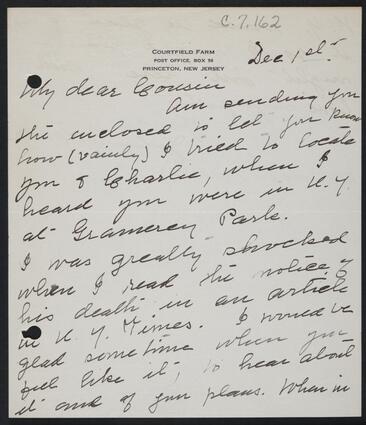 C.7.162
COURTFIELD FARM
POST OFFICE, BOX 56
PRINCETON, NEW JERSEY
Dec 1st.
My dear Cousin
Am sending you
the enclosed to let you know
how (vainly) I tried to locate
you & Charlie, when I
heard you were in N.Y.
at Gramercy Park.
I was greatly shocked
when I read the notice of
his death in an article
in N.Y. Times. I would be
glad sometime when you
feel like it, to hear about
it and of your plans. When in